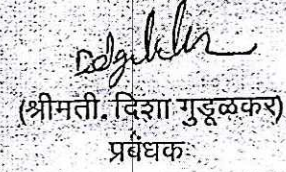 (श्रीमती. दिशा गुडूळकर)
प्रबंधक